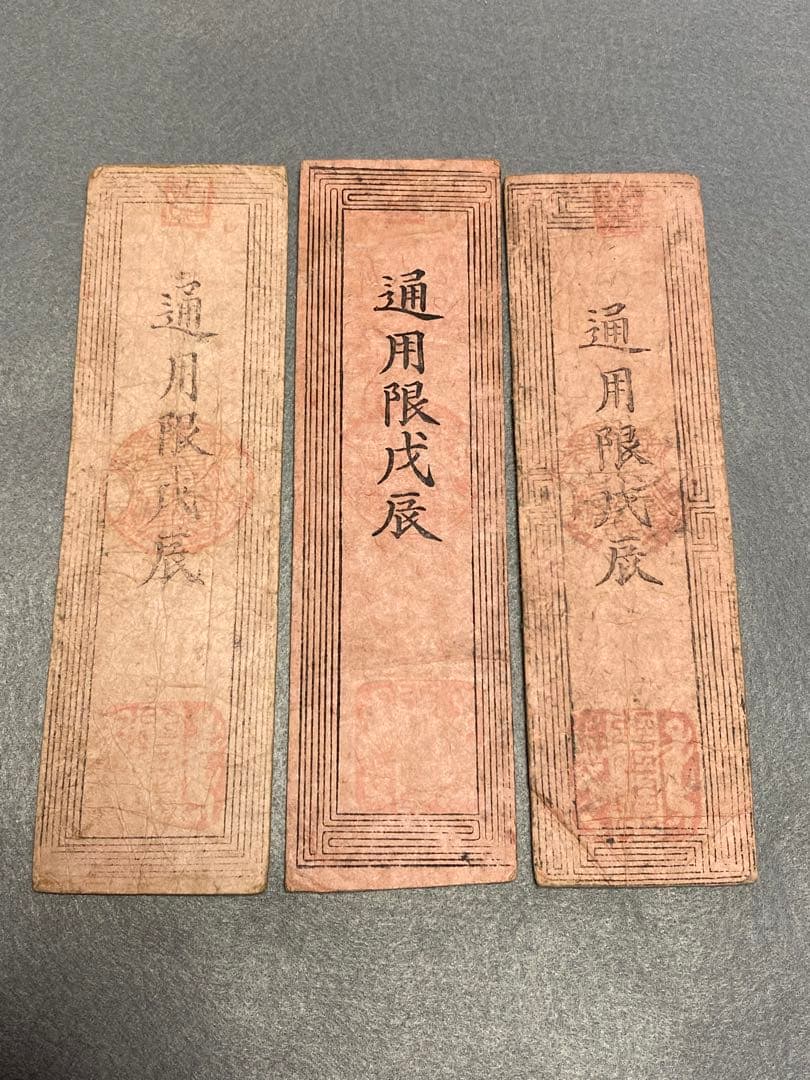 通用限戊辰
通用限戊辰
通用限戊辰